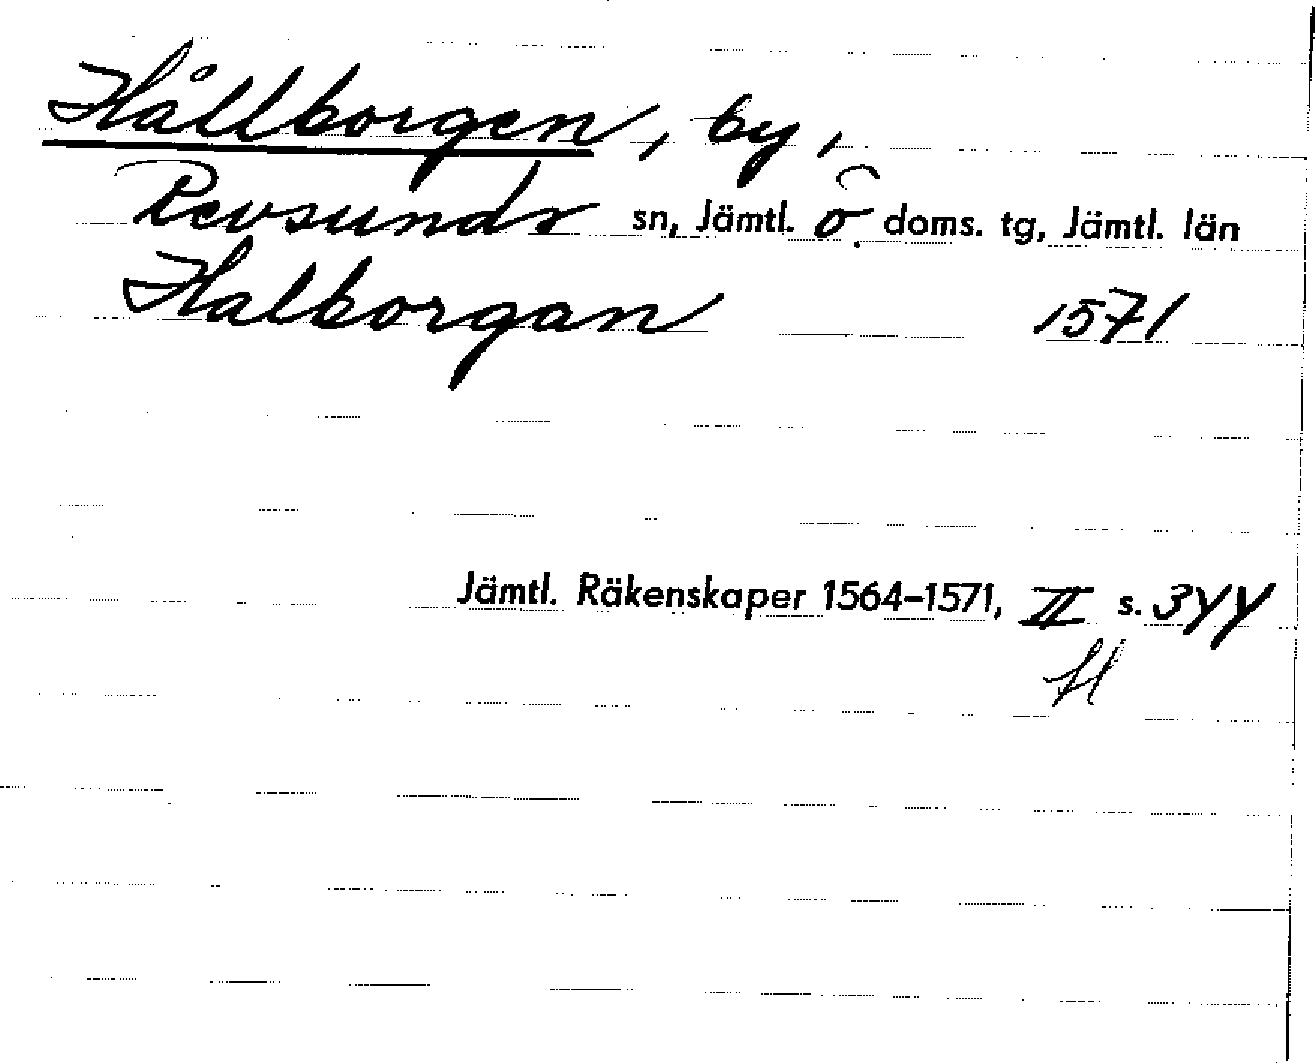 Hållborgen, by,
Revsunds sn, Jämtl. ö. doms. tg, Jämtl. län
Halborgan 1571
Jämtl. Räkenskaper 1564–1571, II s. 344